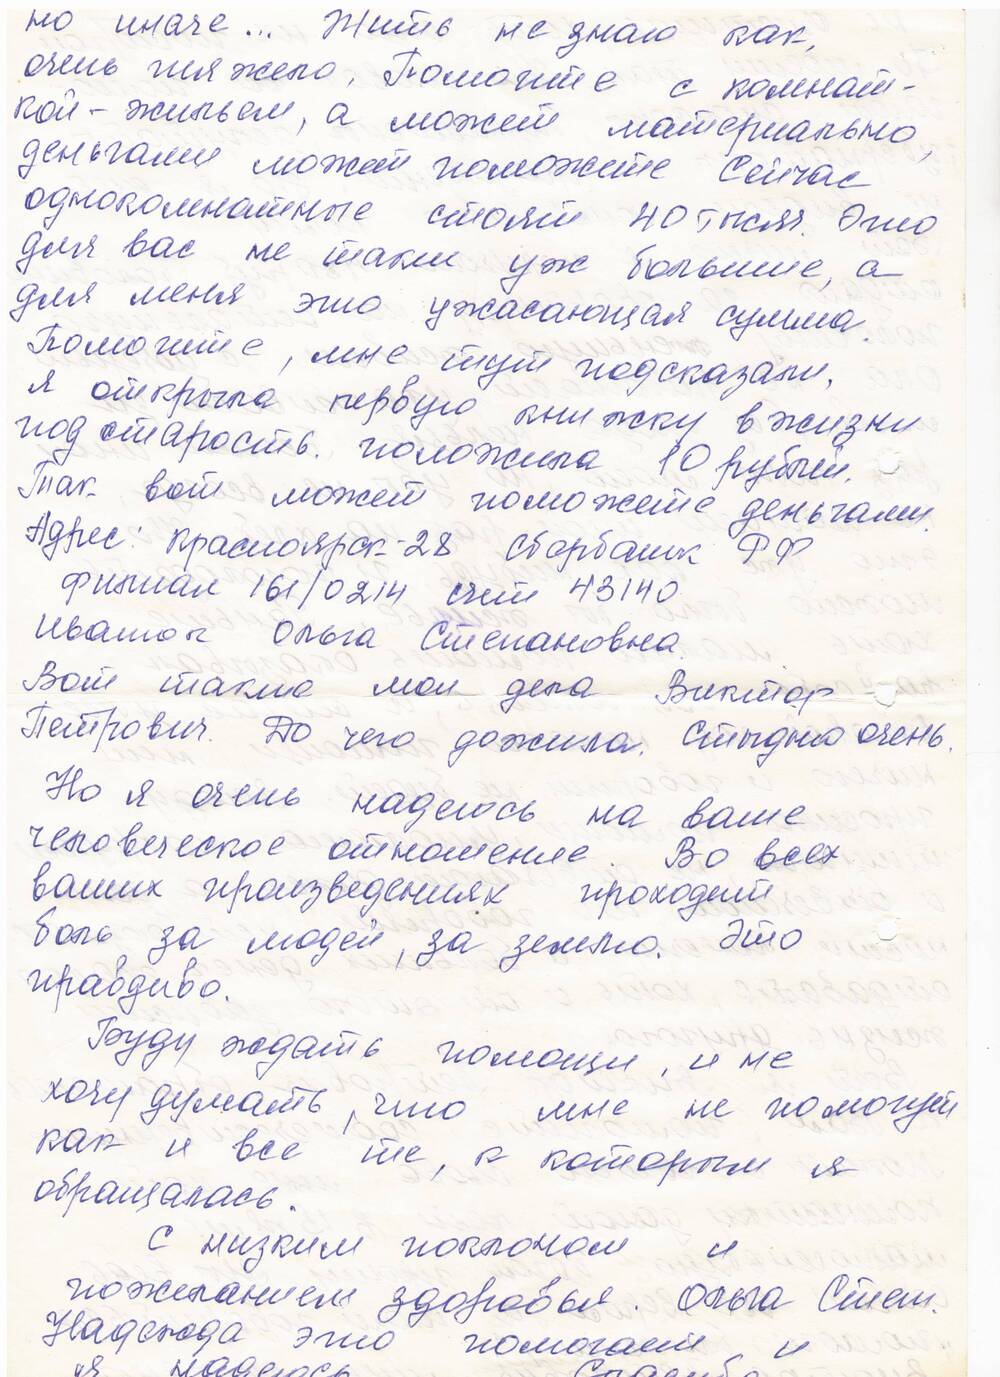 но иначе... Жить не знаю как,
очень тяжело. Помогите с комнат-
кой - жильем, а может материально,
деньгами может поможете Сейчас
однокомнатные стоят 40 тысяч. Это
для вас не такие уж большие, а
для меня это ужасающая сумма.
Помогите, мне тут подсказали,
я открыла первую книжку в жизни
под старость. положила 10 рублей.
Так вот может поможете деньгами.
Адрес: Красноярск-28 Сбербанк РФ
филиал 161/0214 счет 43140
Ивашок Ольга Степановна.
Вот такие мои дела Виктор
Петрович. До чего дожила. Стыдно очень.
Но я очень надеюсь на ваше
человеческое отношение. Во всех
ваших произведениях проходит
боль за людей, за землю. Это
правдиво.
Буду ждать помощи, и не
хочу думать, что мне не помогут
как и все те, к которым я
обращалась.
С низким поклоном и
пожеланием здоровья. Ольга Степ.
Надежда это помогает и
я надеюсь Спасибо